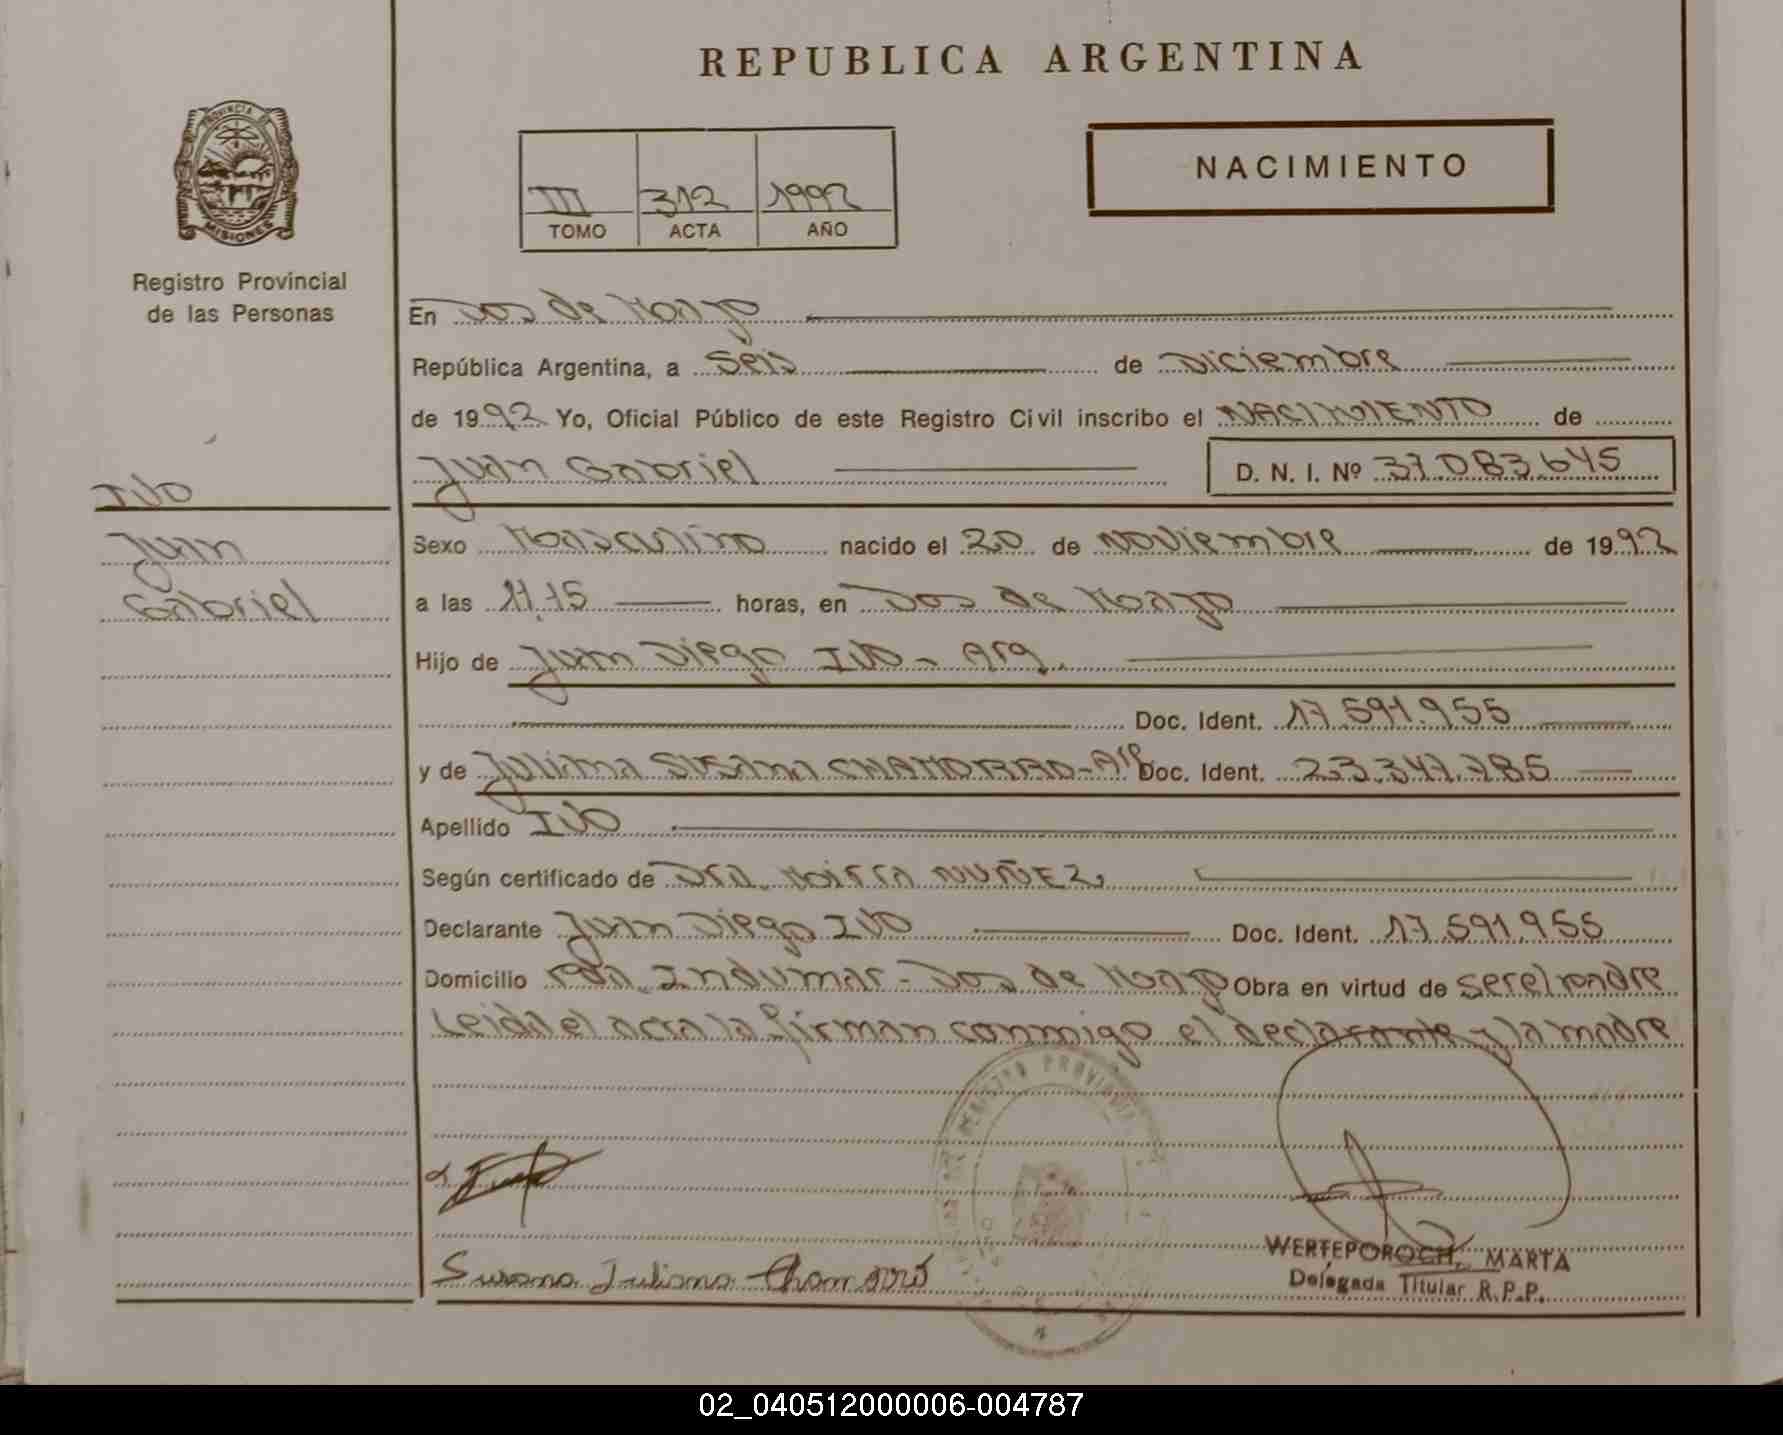 REPUBLICA ARGENTINA
PROVINCIA DE
MISIONES
Registro Provincial
de las Personas
III 312 1992
TOMO ACTA AÑO
NACIMIENTO
En Dos de Mayo
República Argentina, a Seis de Diciembre
de 1992 Yo, Oficial Público de este Registro Civil inscribo el NACIMIENTO de
Juan Gabriel D. N. I. Nº 37.083.645
IVO
Juan
Gabriel
Sexo Masculino nacido el 20 de Noviembre de 1992
a las 11,15 horas, en Dos de Mayo
Hijo de Juan Diego IVO - Arg.
Doc. Ident. 17.591.955
y de Juliana SUSANA CHAMORRO - Arg Doc. Ident. 23.347.785
Apellido IVO
Según certificado de Dra. Mirta NUÑEZ,
Declarante Juan Diego IVO Doc. Ident. 17.591.955
Domicilio Pda. Indumar - Dos de Mayo Obra en virtud de ser el padre
Leida el acta la firman conmigo el declarante y la madre
REGISTRO PROVINCIAL
Susana Juliana Chamorro
WERTEPOROCH, MARTA
Delegada Titular R.P.P.
02_040512000006-004787